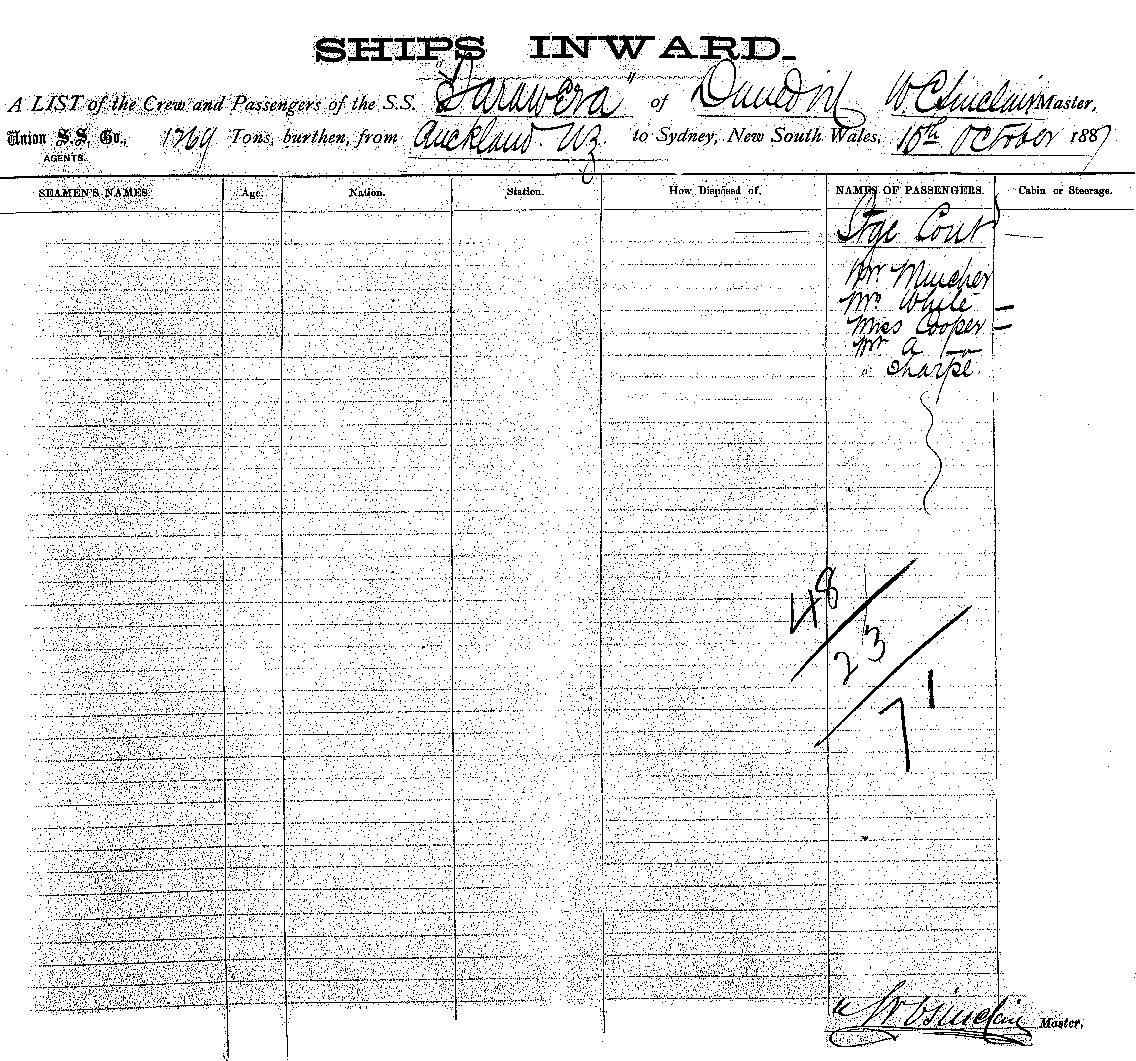 SHIPS INWARD.
A LIST of the Crew and Passengers of the S.S. "Tarawera" of Dunedin W. C. Sinclair Master,
Union S.S. Co., 1269 Tons, burthen, from Auckland. NZ to Sydney, New South Wales, 15th October 1887
AGENTS.
SEAMEN'S NAMES. Age. Nation. Station. How Disposed of. NAMES OF PASSENGERS. Cabin or Steerage.
Stge Cont
Mr Muncher
White
Miss Cooper
Mr A
" Sharpe
48
23
71
Sinclair Master.